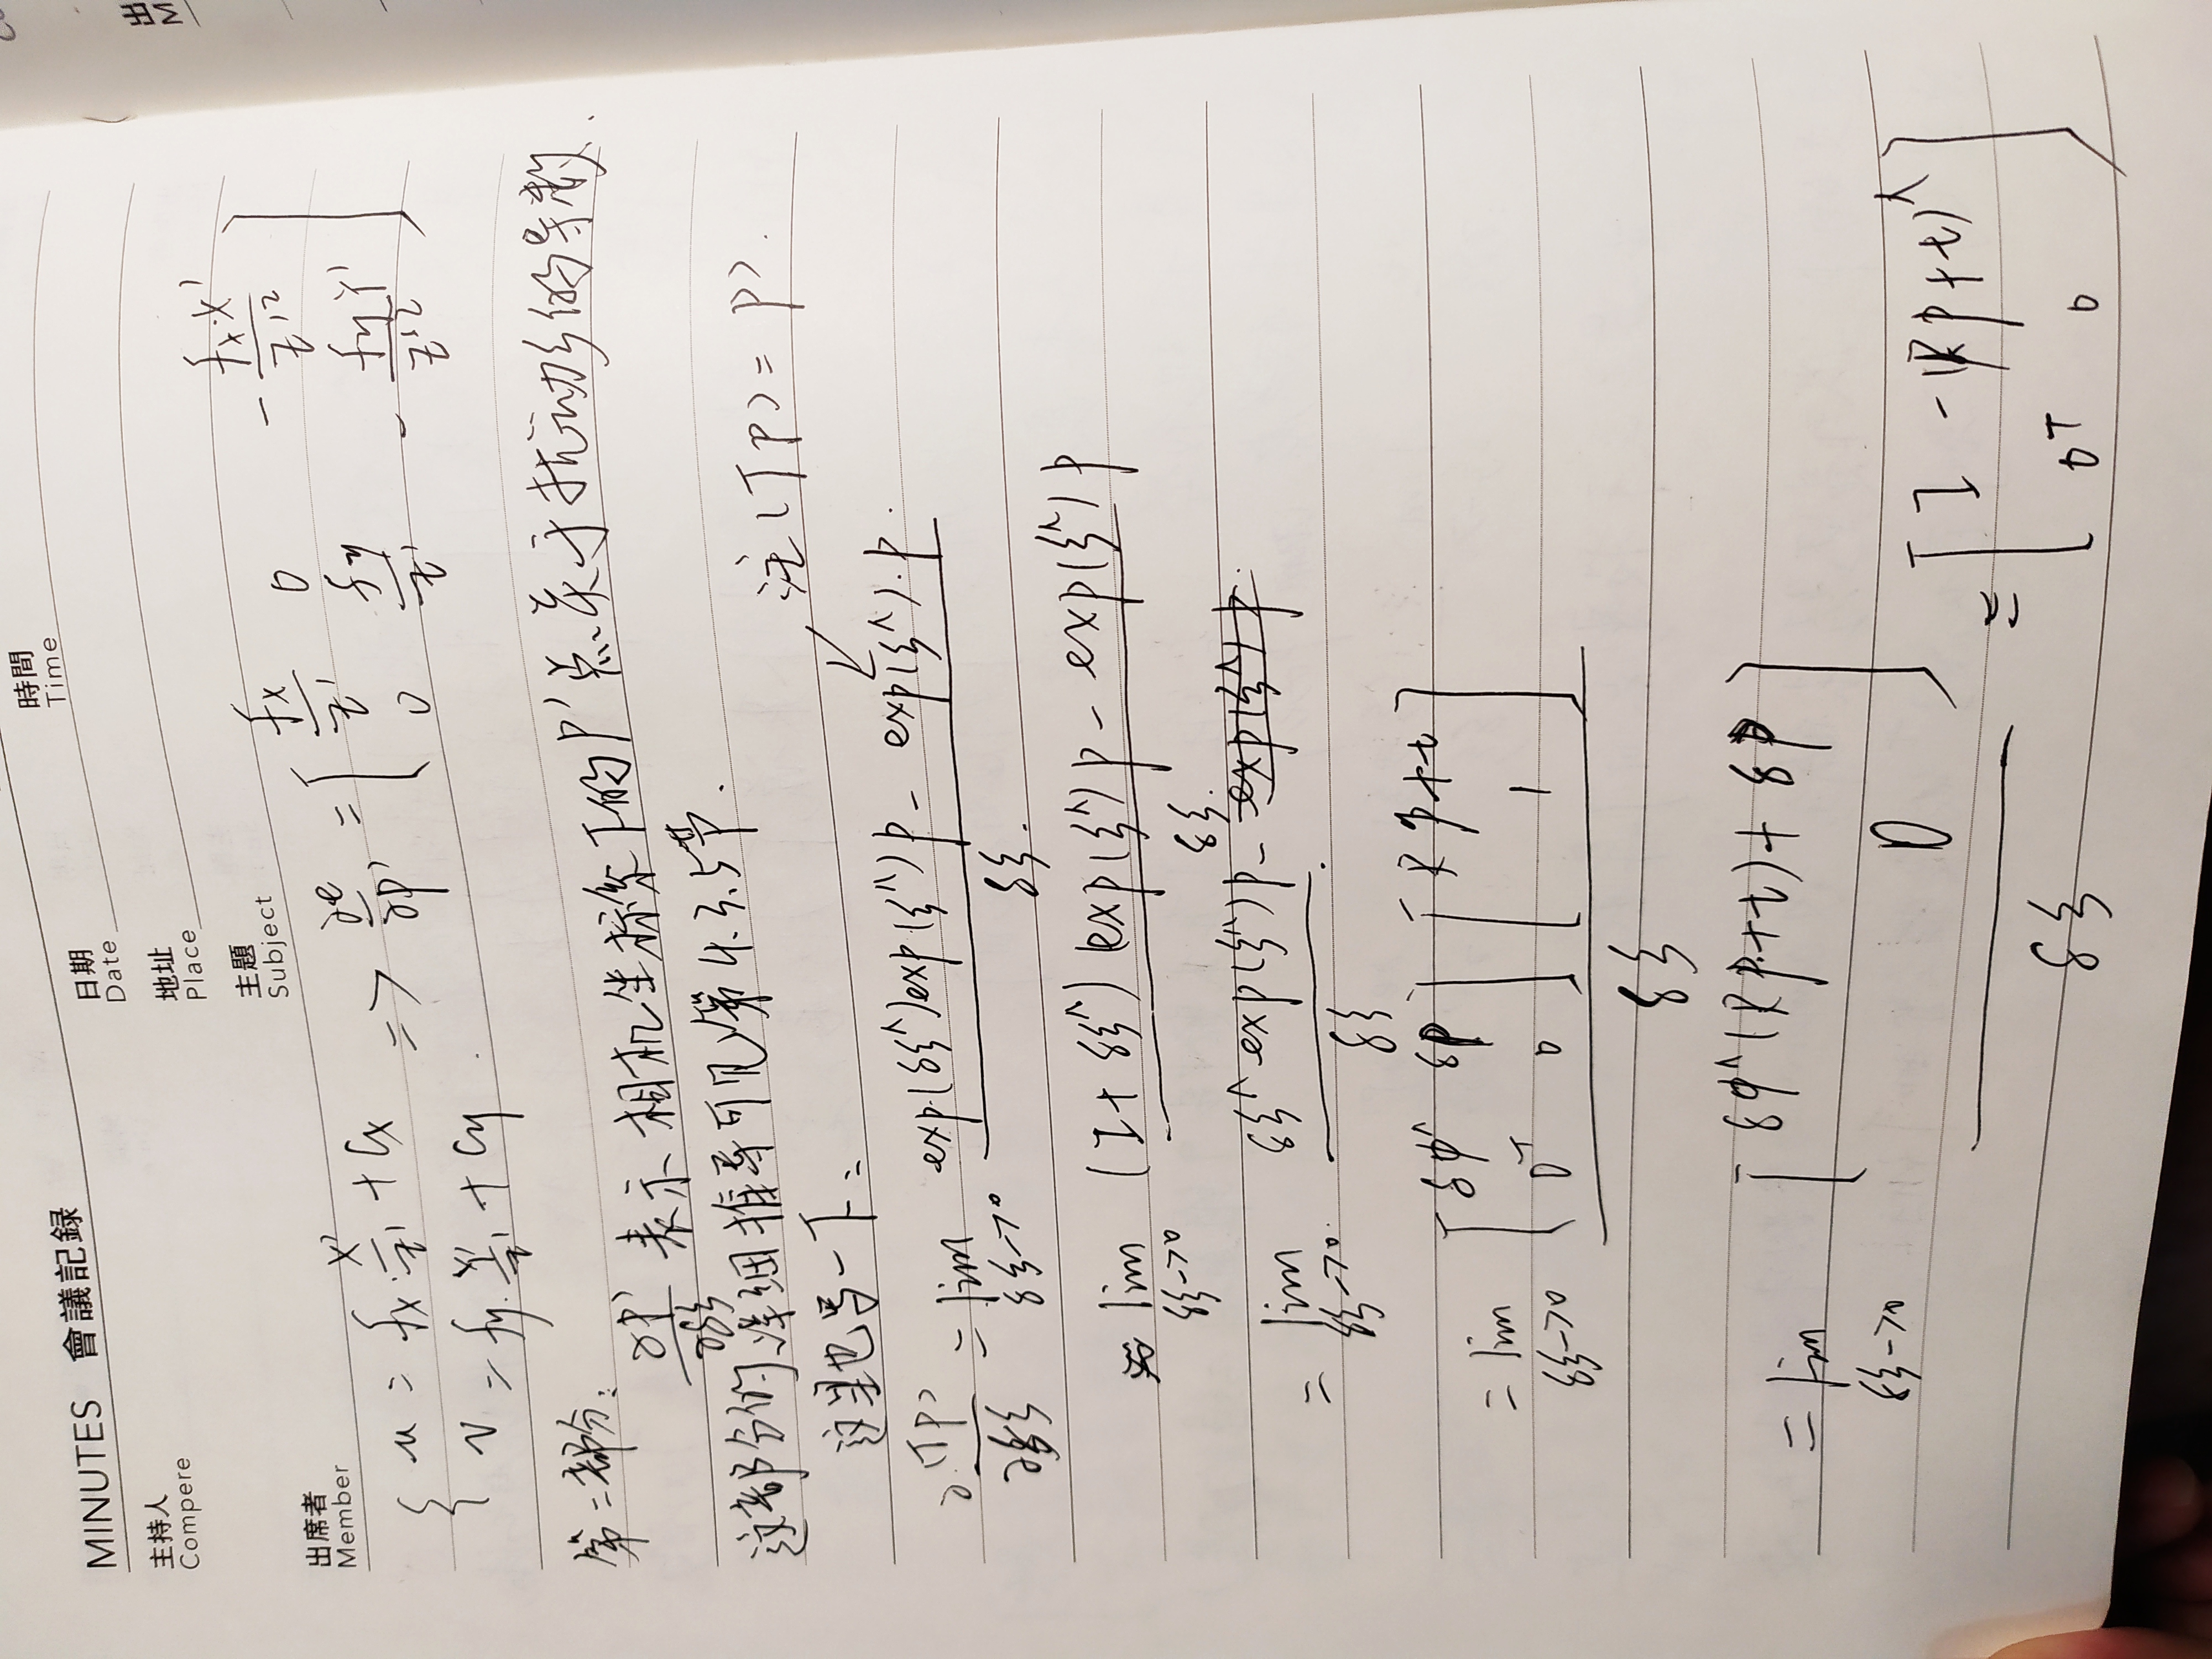 MINUTES 會議記録
時間
Time
日期
Date
主持人
Compere
地址
Place
主題
Subject
出席者
Member
{ u = fx·X'/Z' + Cx => ∂e/∂p' = [ fx/Z' 0 -fx·X'/Z'²
v = fy·Y'/Z' + Cy 0 fy/Z' -fyY'/Z'² ]
第二部分:
∂p'/∂δξ 表示相机坐标系下的P'点关于扰动ξ的导数.
这部分的详细推导可见第4.3.5节.
注(Tp)= p'.
这里也写一下:
∂(Tp)/∂δξ = lim δξ->0 exp(δξ^)exp(ξ^)p - exp(ξ^)·p / δξ.
≈ lim δξ->0 (I + δξ^)exp(ξ^)p - exp(ξ^)p / δξ.
= lim δξ->0. δξ^exp(ξ^)p - exp(ξ^)p / δξ
= lim δξ->0 [ δφ^ δρ 0ᵀ 0 ] [ Rp+t 1 ] / δξ
= lim δξ->0 [ δφ^(Rp+t)+ δρ 0 ] / δξ
= [ I -(Rp+t)^ 0ᵀ 0 ]